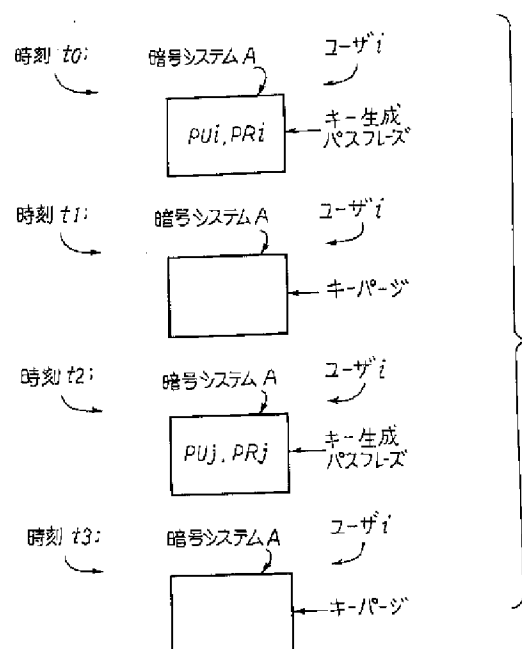 時刻 t0;
暗号システムA
ユーザi
PUi, PRi
キー生成
パスフレーズ
時刻 t1;
暗号システムA
ユーザi
キーパージ
時刻 t2;
暗号システムA
ユーザi
PUj, PRj
キー生成
パスフレーズ
時刻 t3;
暗号システムA
ユーザi
キーパージ